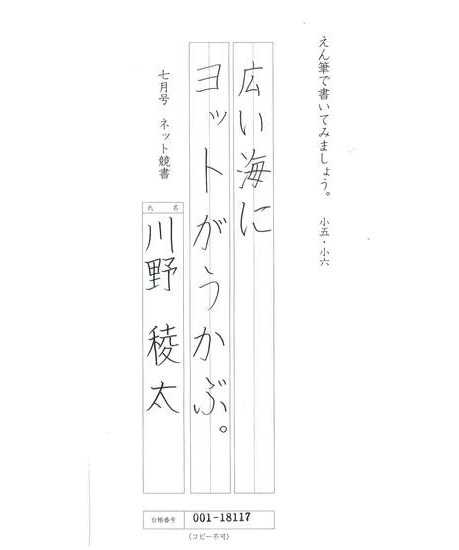 えん筆で書いてみましょう。　小五・小六
広い海に
ヨットがうかぶ。
七月号　ネット競書
氏名
川野　稜太
台帳番号　001-18117
(コピー不可)